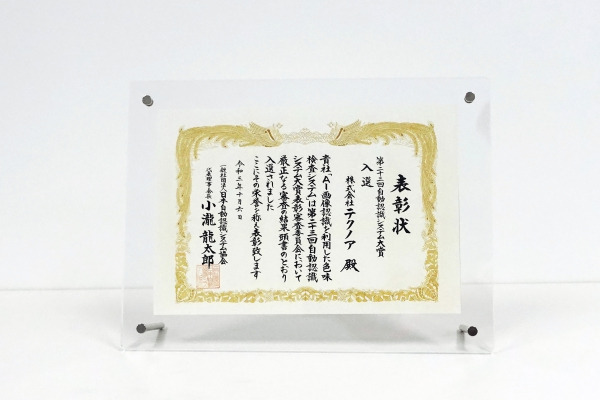 表彰状
第二十三回自動認識システム大賞
入選
株式会社テクノア 殿
貴社「AI画像認識を利用した色味
検査システム」は第二十三回自動認識
システム大賞表彰審査委員会において
厳正なる審査の結果頭書のとおり
入選されました
ここにその栄誉を称え表彰致します
令和三年十月六日
一般社団法人日本自動認識システム協会
代表理事会長 小瀧 龍太郎